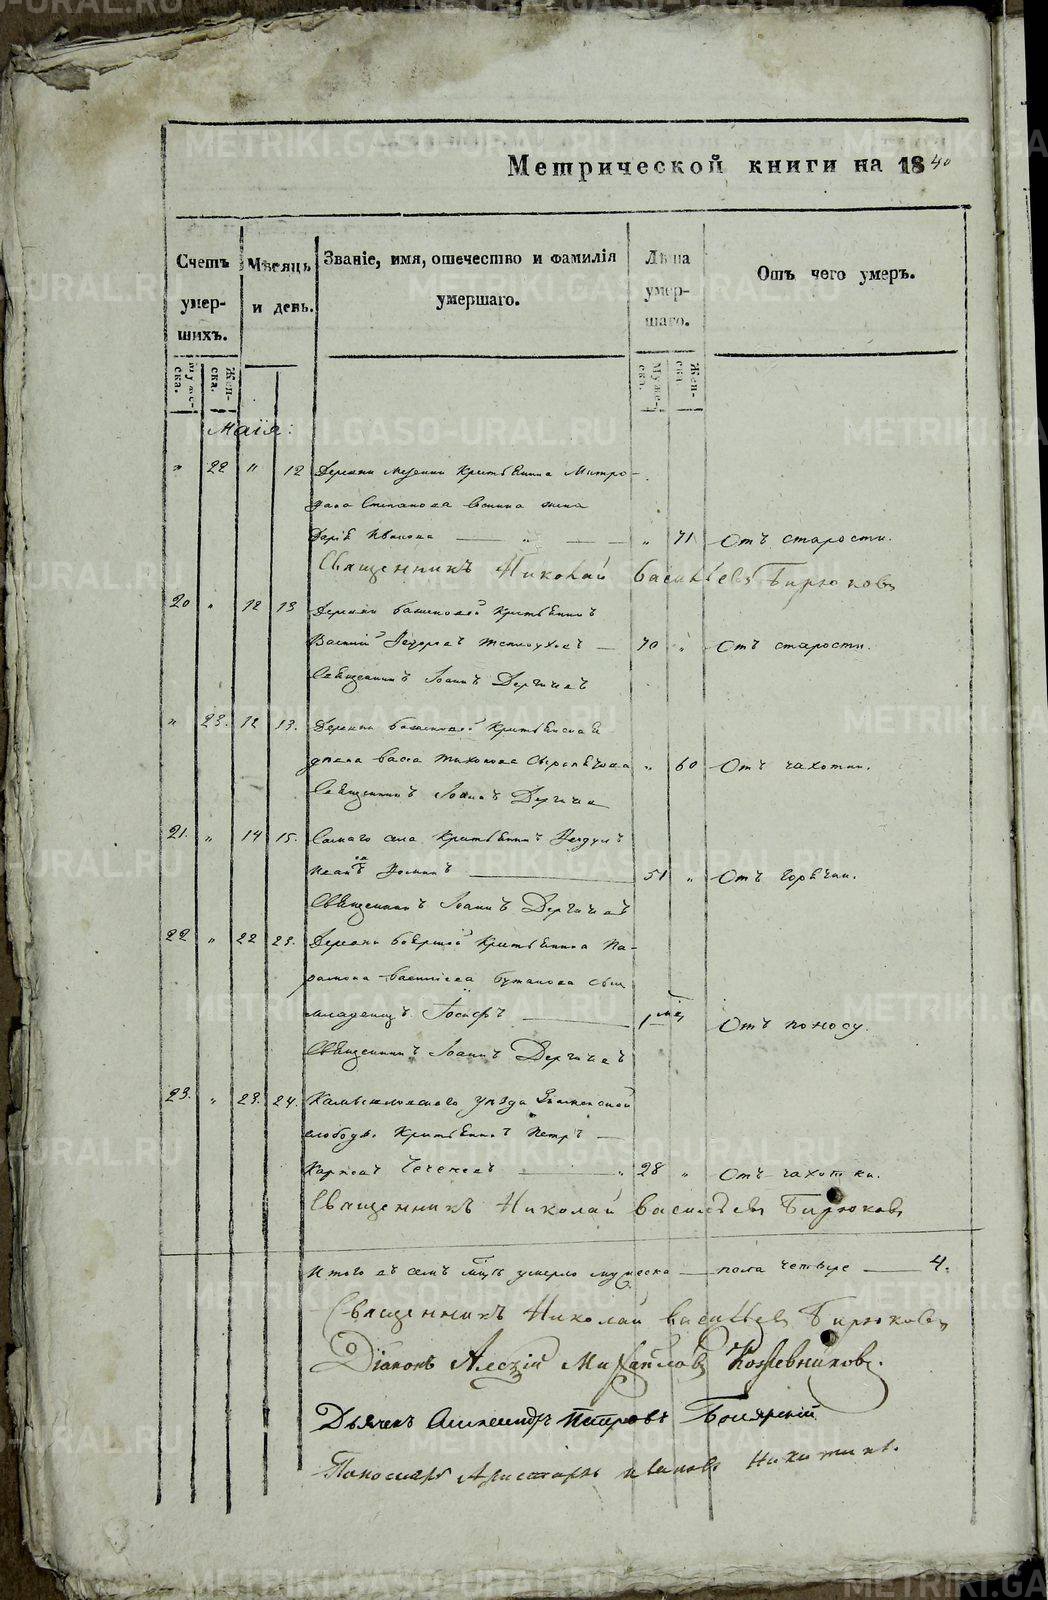 Метрической книги на 1840
Счетъ умер-шихъ.
Мѣсяцъ и день.
Званіе, имя, отечество и фамилія умершаго.
Лѣта умер-шаго.
Отъ чего умеръ.
Муже-ска. Жен-ска. Муже-ска. Жен-ска.
Маія:
" 22 " 12 Деревни Крестьянина Митро-
Степанова жена
Дарія Иванова — " — " 71 Отъ старости.
Священникъ Николай Васильевъ Бирюковъ
20 " 12 13 Деревни Крестьянинъ
Василій Федоровъ — 70 " Отъ старости.
Священникъ Іоаннъ Дергачевъ
" 23. 12 13. Деревни Крестьянская
Васса Тихонова " 60 Отъ чахотки.
Священникъ Іоаннъ Дергачев
21. " 14 15. Самаго села Крестьянинъ Федулъ
Ивановъ Фоминъ — 51 " Отъ горячки.
Священникъ Іоаннъ Дергачевъ
22 " 22 23. Деревни Крестьянина Па-
рамона Васильева Бутакова сынъ
младенецъ Іосифъ — 1 мѣс. Отъ поносу.
Священникъ Іоаннъ Дергачевъ
23. " 23. 24. Камышловскаго уѣзда
слободы Крестьянинъ Петръ —
Карповъ — " 28 " Отъ чахотки.
Священникъ Николай Васильевъ Бирюковъ
Итого въ семъ мѣсяцѣ умерло мужеска — пола четыре — 4.
Священникъ Николай Васильевъ Бирюковъ
Діаконъ Алексій Михайловъ Кожевниковъ.
Дьячекъ Александръ Петровъ Боярскій
Пономарь Аристархъ Ивановъ Никитинъ.
METRIKI.GASO-URAL.RU